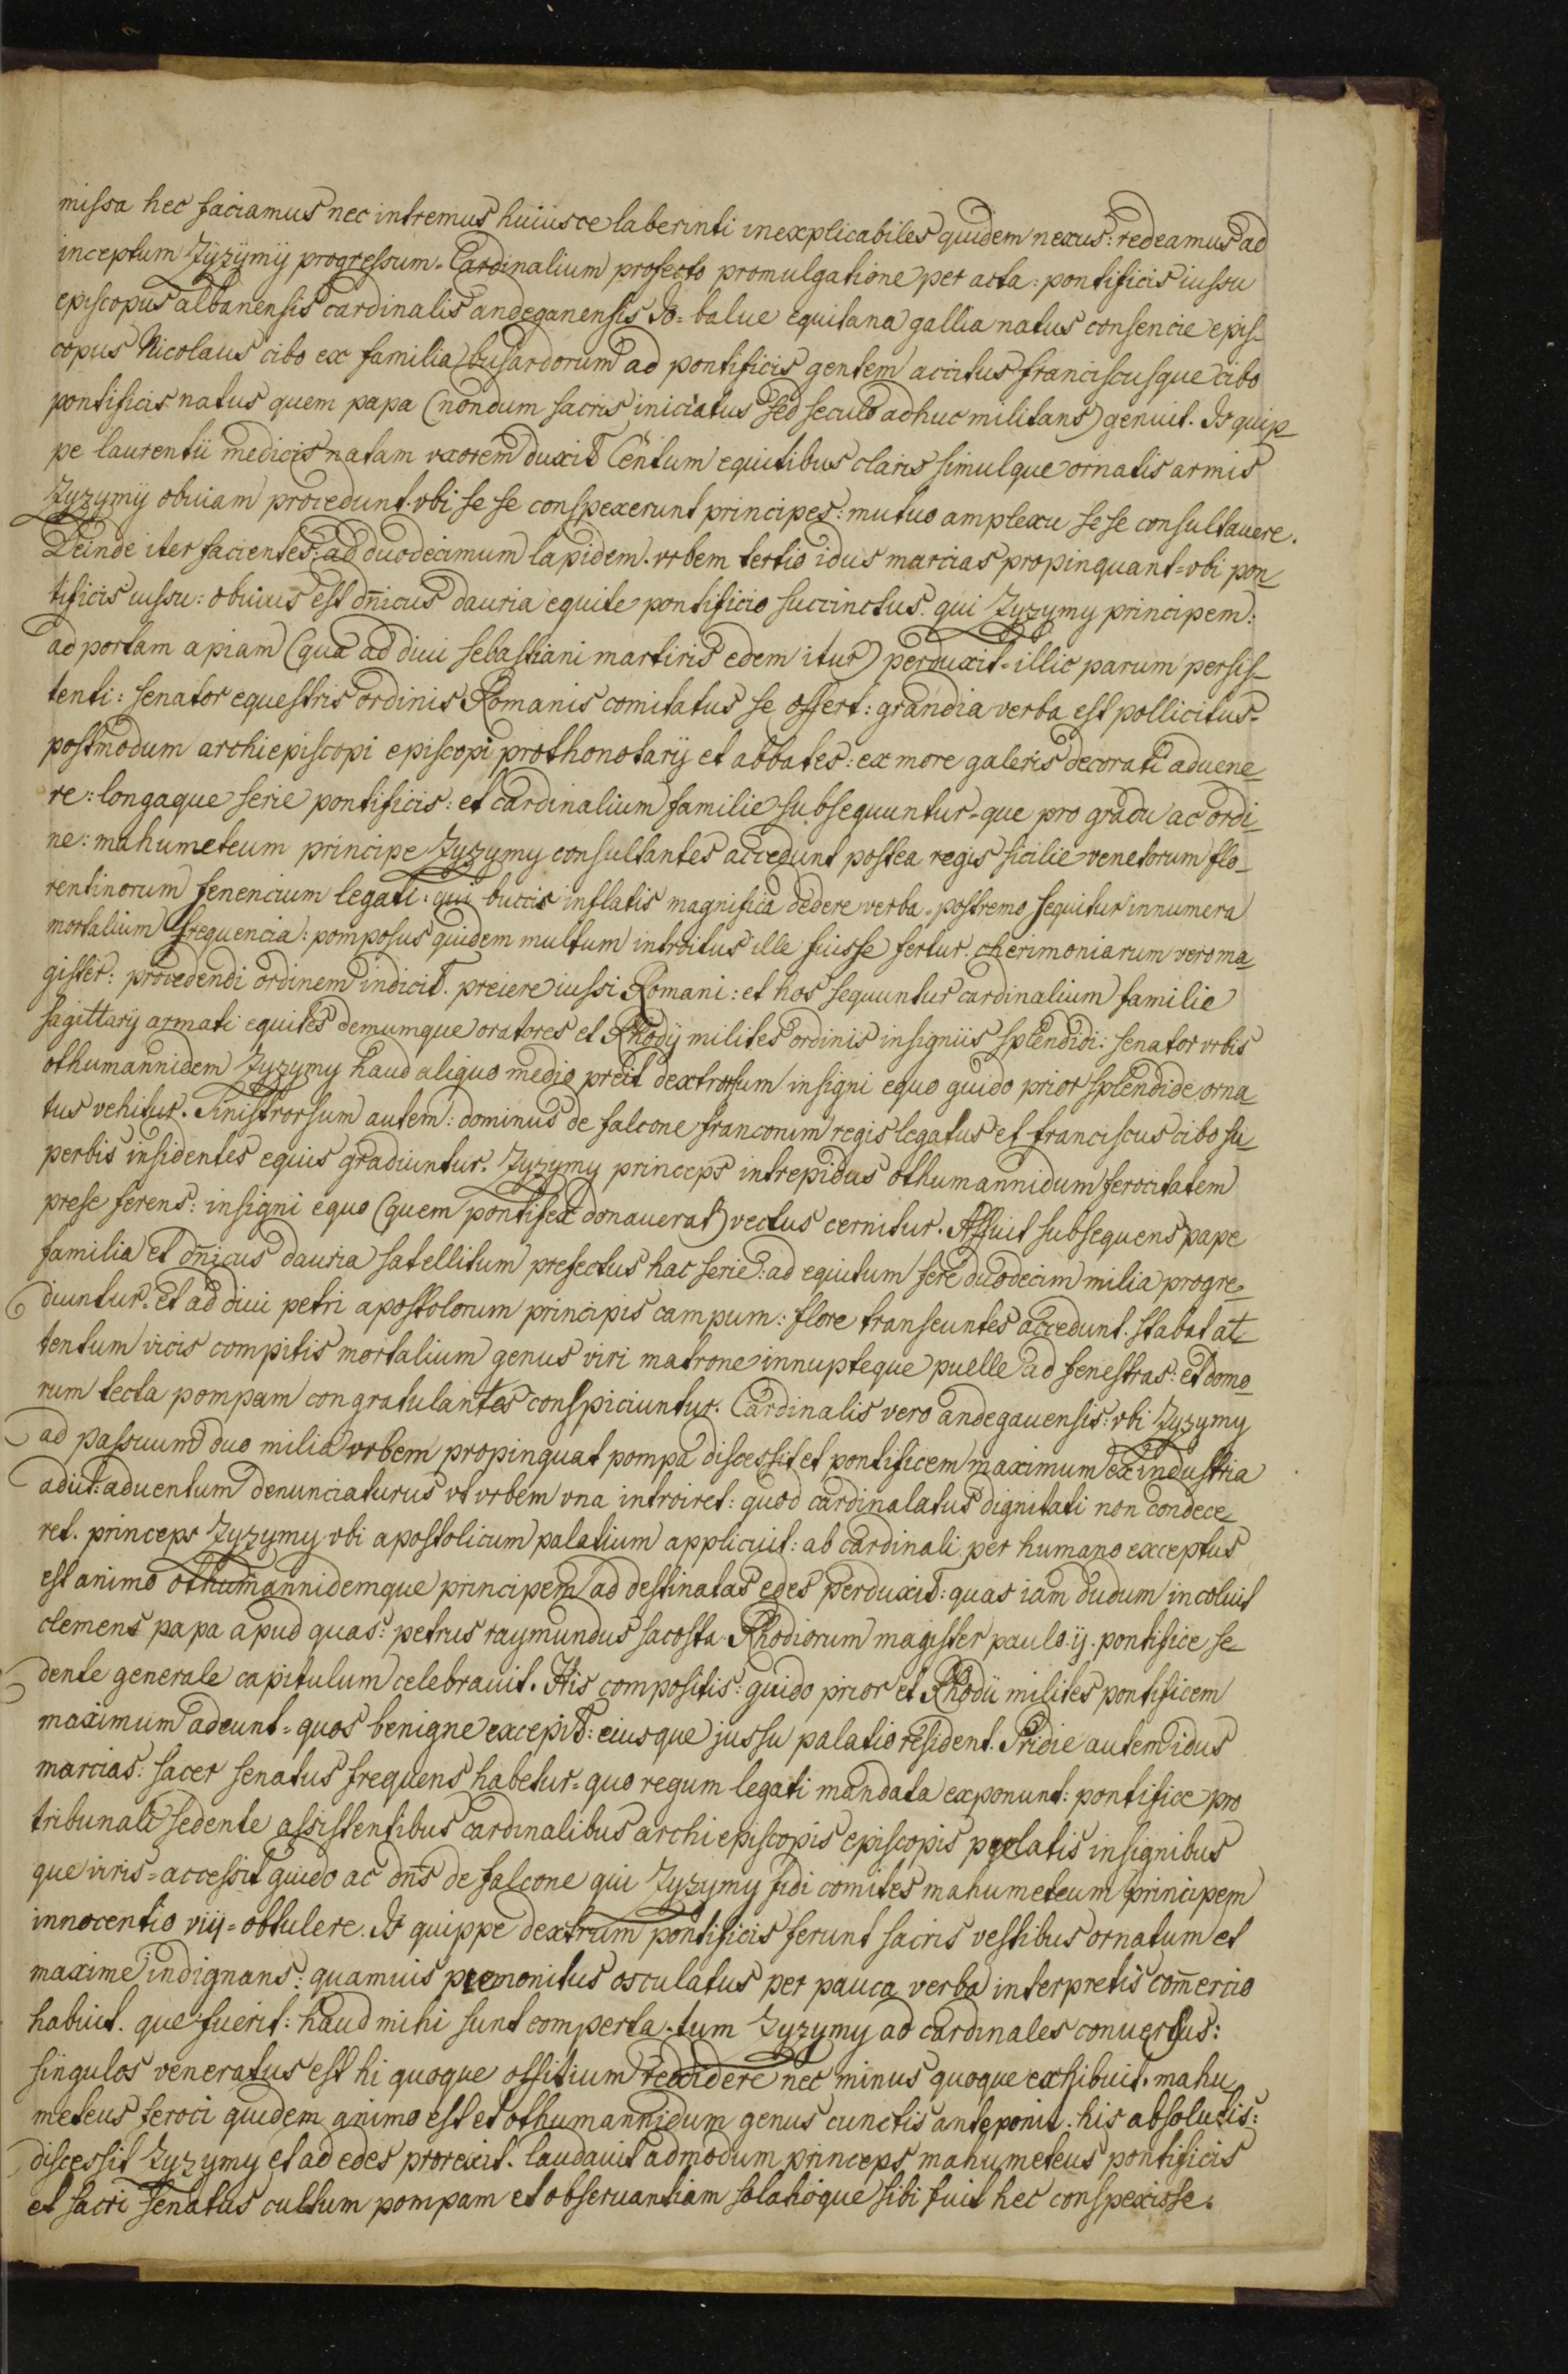 missa hec faciamus nec intremus huiusce laberinti inexplicabiles quidem nexus: redeamus ad
inceptum Zyzymij progressum. Cardinalium profecto promulgatione per acta: pontificis iussu
episcopus albanensis cardinalis andeganensis Io= balue equitana gallia natus consencie epis-
copus Nicolaus cibo ex familia busardorum ad pontificis gentem accitus franciscusque cibo
pontificis natus quem papa (nondum sacris iniciatus sed seculo adhuc militans) genuit. Is quip-
pe laurentii medicis natam vxorem duxit Centum equitibus claris simulque ornatis armis
Zyzymij obuiam procedunt. vbi se se conspexerunt principes: mutuo amplexu se se consultauere.
Deinde iter facientes: ad duodecimum lapidem. vrbem tertio idus marcias propinquant= vbi pon-
tificis iussu: obuius est dn̄icus dauria equite pontificio succinctus. qui Zyzymy principem:
ad portam apiam (qua ad diui sebastiani martiris edem itur) perduxit= illic parum persis-
tenti: senator equestris ordinis Romanis comitatus se offert: grandia verba est pollicitus=
postmodum archiepiscopi episcopi prothonotarij et abbates: ex more galeris decorati aduene-
re: longaque serie pontificis: et cardinalium familie subsequuntur= que pro gradu ac ordi-
ne: mahumeteum principe Zyzymy consultantes accedunt postea regis sicilie venetorum flo-
rentinorum senencium legati: qui buccis inflatis magnifica dedere verba. postremo sequitur innumera
mortalium frequencia: pomposus quidem multum introitus ille fuisse fertur. cherimoniarum vero ma-
gister: procedendi ordinem indicit. preiere iussi Romani: et hos sequuntur cardinalium familie
sagittarij armati equites demumque oratores et Rhodij milites ordinis insigniis splendidi: senator vrbis
othumannidem Zyzymy haud aliquo medio preit dextrorsum insigni equo guido prior splendide orna-
tus vehitur. Sinistrorsum autem: dominus de falcone franconum regis legatus et franciscus cibo su-
perbis insidentes equis gradiuntur. Zyzymy princeps intrepidus othumannidum ferocitatem
prese ferens: insigni equo (quem pontifex donauerat) vectus cernitur. Affuit subsequens pape
familia et dn̄icus dauria satellitum prefectus hac serie: ad equitum fere duodecim milia progre-
diuntur. et ad diui petri apostolorum principis campum: flore transeuntes accedunt. stabat at-
tentum vicis compitis mortalium genus viri matrone innupteque puelle ad fenestras: et domo-
rum tecta pompam congratulantes conspiciuntur. Cardinalis vero andegauensis: vbi Zyzymy
ad passuum duo milia vrbem propinquat pompa discessit et pontificem maximum ex industria
adiit: aduentum denunciaturus vt vrbem vna introiret: quod cardinalatus dignitati non condece-
ret. princeps Zyzymy vbi apostolicum palatium applicuit: ab cardinali per humano exceptus
est animo othumannidemque principem ad destinatas edes perduxit: quas iam dudum incoluit
clemens papa apud quas: petrus raymundus sacosta Rhodiorum magister paulo .ij. pontifice se-
dente generale capitulum celebrauit. His compositis: guido prior et Rhodii milites pontificem
maximum adeunt= quos benigne excepit: eiusque jussu palatio resident. Pridie autem idus
marcias: sacer senatus frequens habetur= quo regum legati mandata exponunt: pontifice pro
tribunali sedente assistentibus cardinalibus archiepiscopis episcopis prelatis insignibus
que viris= accessit guido ac dn̄s de falcone qui Zyzymy fidi comites mahumeteum principem
innocentio viij= obtulere. Is quippe dextrum pontificis ferunt sacris vestibus ornatum et
maxime indignans: quamuis premonitus osculatus per pauca verba interpretis com̄ercio
habuit. que fuerit: haud mihi sunt comperta. tum Zyzymy ad cardinales conuersus:
singulos veneratus est hi quoque offitium reddidere nec minus quoque exhibuit. mahu-
meteus feroci quidem animo est et othumannidum genus cunctis anteponit. his absolutis:
discessit Zyzymy et ad edes prorexit. laudauit admodum princeps mahumeteus pontificis
et sacri senatus cultum pompam et obseruantiam solatioque sibi fuit hec conspexisse.